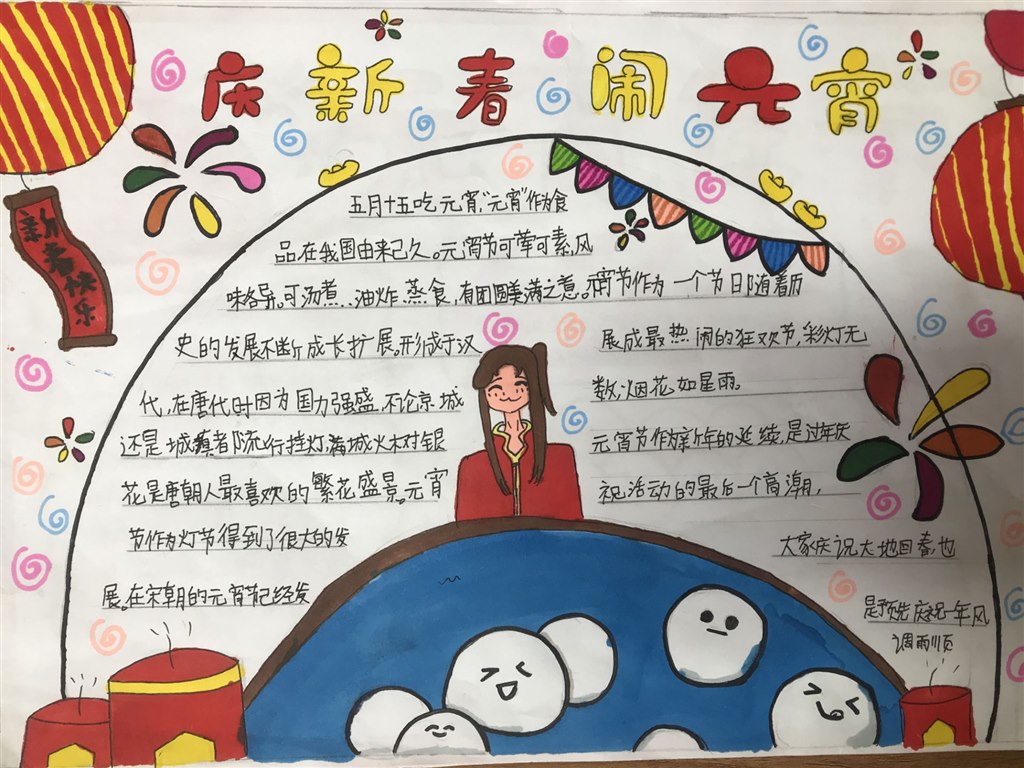 庆新春闹元宵
新春快乐
五月十五吃元宵,"元宵"作为食
品在我国由来已久。元宵节可荤可素,风
味各异。可汤煮、油炸、蒸食,有团圆美满之意。宵节作为一个节日随着历
史的发展不断成长扩展。形成于汉
代,在唐代时因为国力强盛,不论京城
还是城镇者阝流行挂灯,满城火树银
花是唐朝人最喜欢的繁花盛景。元宵
节作为灯节得到了很大的发
展。在宋朝的元宵节已经发
展成最热闹的狂欢节,彩灯无
数,烟花如星雨。
元宵节作为新年的延续,是过年庆
祝活动的最后一个高潮,
大家庆祝大地回春,也
是预先庆祝一年风
调雨顺